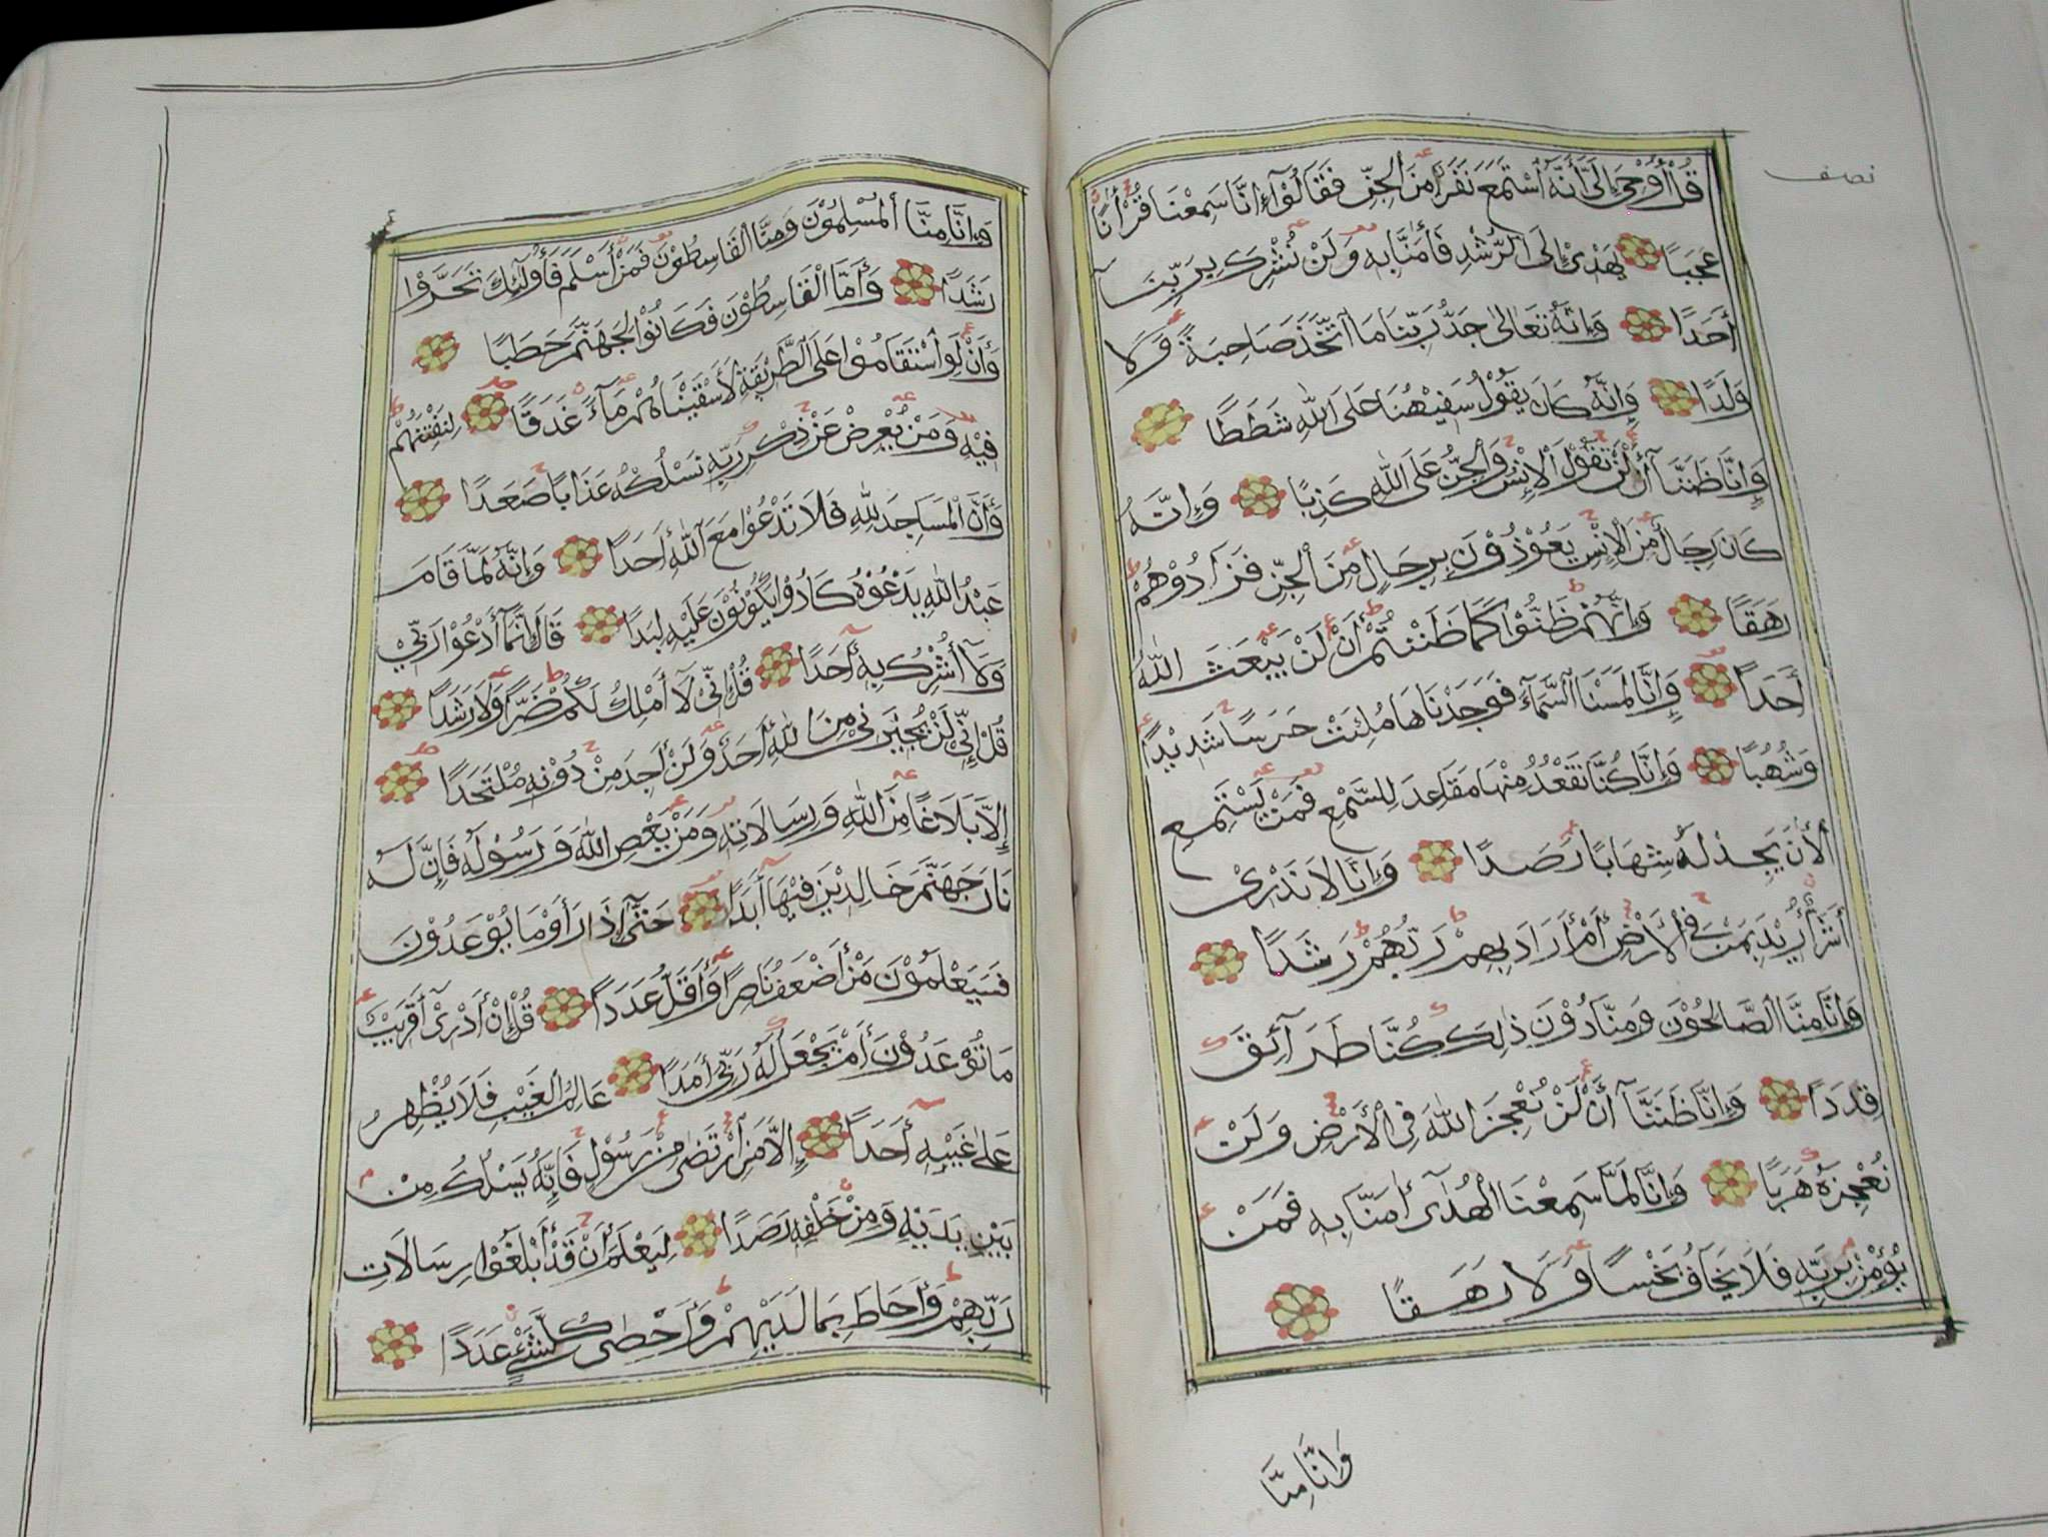 نصف
قُلْ أُوْحِىَ إِلَىَّ أَنَّهُ ٱسْتَمَعَ نَفَرٌ مِّنَ ٱلْجِنِّ فَقَالُوْٓا۟ إِنَّا سَمِعْنَا قُرْءَانًا
عَجَبًا يَهْدِىْٓ إِلَى ٱلرُّشْدِ فَأٰمَنَّا بِهِ وَلَنْ نُشْرِكَ بِرَبِّنَآ
أَحَدًا وَإِنَّهُ تَعَالٰى جَدُّ رَبِّنَا مَا ٱتَّخَذَ صَاحِبَةً وَّلَا
وَلَدًا وَإِنَّهُ كَانَ يَقُوْلُ سَفِيْهُنَا عَلَى ٱللّٰهِ شَطَطًا
وَإِنَّا ظَنَنَّآ أَنْ لَّنْ تَقُوْلَ ٱلْإِنْسُ وَٱلْجِنُّ عَلَى ٱللّٰهِ كَذِبًا وَإِنَّهُ
كَانَ رِجَالٌ مِّنَ ٱلْإِنْسِ يَعُوْذُوْنَ بِرِجَالٍ مِّنَ ٱلْجِنِّ فَزَادُوْهُمْ
رَهَقًا وَإِنَّهُمْ ظَنُّوْا كَمَا ظَنَنْتُمْ أَنْ لَّنْ يَبْعَثَ اللّٰهُ
أَحَدًا وَإِنَّا لَمَسْنَا ٱلسَّمَآءَ فَوَجَدْنَاهَا مُلِئَتْ حَرَسًا شَدِيْدًا
وَشُهُبًا وَإِنَّا كُنَّا نَقْعُدُ مِنْهَا مَقَاعِدَ لِلسَّمْعِ فَمَنْ يَسْتَمِعِ
ٱلْأٰنَ يَجِدْ لَهُ شِهَابًا رَّصَدًا وَإِنَّا لَا نَدْرِىْ
أَشَرٌّ أُرِيْدَ بِمَنْ فِى ٱلْأَرْضِ أَمْ أَرَادَ بِهِمْ رَبُّهُمْ رَشَدًا
وَإِنَّا مِنَّا ٱلصَّالِحُوْنَ وَمِنَّا دُوْنَ ذٰلِكَ كُنَّا طَرَآئِقَ
قِدَدًا وَإِنَّا ظَنَنَّآ أَنْ لَّنْ نُعْجِزَ ٱللّٰهَ فِى ٱلْأَرْضِ وَلَنْ
نُعْجِزَهُ هَرَبًا وَإِنَّا لَمَّا سَمِعْنَا ٱلْهُدٰىٓ أٰمَنَّا بِهِ فَمَنْ
يُؤْمِنْ بِرَبِّهِ فَلَا يَخَافُ بَخْسًا وَّلَا رَهَقًا
وَإِنَّا مِنَّا
وَإِنَّا مِنَّا ٱلْمُسْلِمُوْنَ وَمِنَّا ٱلْقَاسِطُوْنَ فَمَنْ أَسْلَمَ فَأُولٰٓئِكَ تَحَرَّوْا
رَشَدًا وَأَمَّا ٱلْقَاسِطُوْنَ فَكَانُوْا لِجَهَنَّمَ حَطَبًا
وَأَنْ لَّوِ ٱسْتَقَامُوْا عَلَى ٱلطَّرِيْقَةِ لَأَسْقَيْنَاهُمْ مَآءً غَدَقًا لِنَفْتِنَهُمْ
فِيْهِ وَمَنْ يُعْرِضْ عَنْ ذِكْرِ رَبِّهِ نَسْلُكْهُ عَذَابًا صَعَدًا
وَأَنَّ ٱلْمَسَاجِدَ لِلّٰهِ فَلَا تَدْعُوْا مَعَ ٱللّٰهِ أَحَدًا وَإِنَّهُ لَمَّا قَامَ
عَبْدُ ٱللّٰهِ يَدْعُوْهُ كَادُوْا يَكُوْنُوْنَ عَلَيْهِ لِبَدًا قَالَ إِنَّمَآ أَدْعُوْا رَبِّيْ
وَلَآ أُشْرِكُ بِهِٓ أَحَدًا قُلْ إِنِّيْ لَآ أَمْلِكُ لَكُمْ ضَرًّا وَّلَا رَشَدًا
قُلْ إِنِّيْ لَنْ يُجِيْرَنِيْ مِنَ ٱللّٰهِ أَحَدٌ وَّلَنْ أَجِدَ مِنْ دُوْنِهِ مُلْتَحَدًا
إِلَّا بَلَاغًا مِّنَ ٱللّٰهِ وَرِسَالَاتِهِ وَمَنْ يَعْصِ ٱللّٰهَ وَرَسُوْلَهُ فَإِنَّ لَهُ
نَارَ جَهَنَّمَ خَالِدِيْنَ فِيْهَآ أَبَدًا حَتّٰىٓ إِذَا رَأَوْا مَا يُوْعَدُوْنَ
فَسَيَعْلَمُوْنَ مَنْ أَضْعَفُ نَاصِرًا وَّأَقَلُّ عَدَدًا قُلْ إِنْ أَدْرِىْٓ أَقَرِيْبٌ
مَا تُوْعَدُوْنَ أَمْ يَجْعَلُ لَهُ رَبِّىْٓ أَمَدًا عَالِمُ ٱلْغَيْبِ فَلَا يُظْهِرُ
عَلٰى غَيْبِهِٓ أَحَدًا إِلَّا مَنِ ٱرْتَضٰى مِنْ رَسُوْلٍ فَإِنَّهُ يَسْلُكُ مِنْ
بَيْنِ يَدَيْهِ وَمِنْ خَلْفِهِ رَصَدًا لِيَعْلَمَ أَنْ قَدْ أَبْلَغُوْا رِسَالَاتِ
رَبِّهِمْ وَأَحَاطَ بِمَا لَدَيْهِمْ وَأَحْصٰى كُلَّ شَيْءٍ عَدَدًا